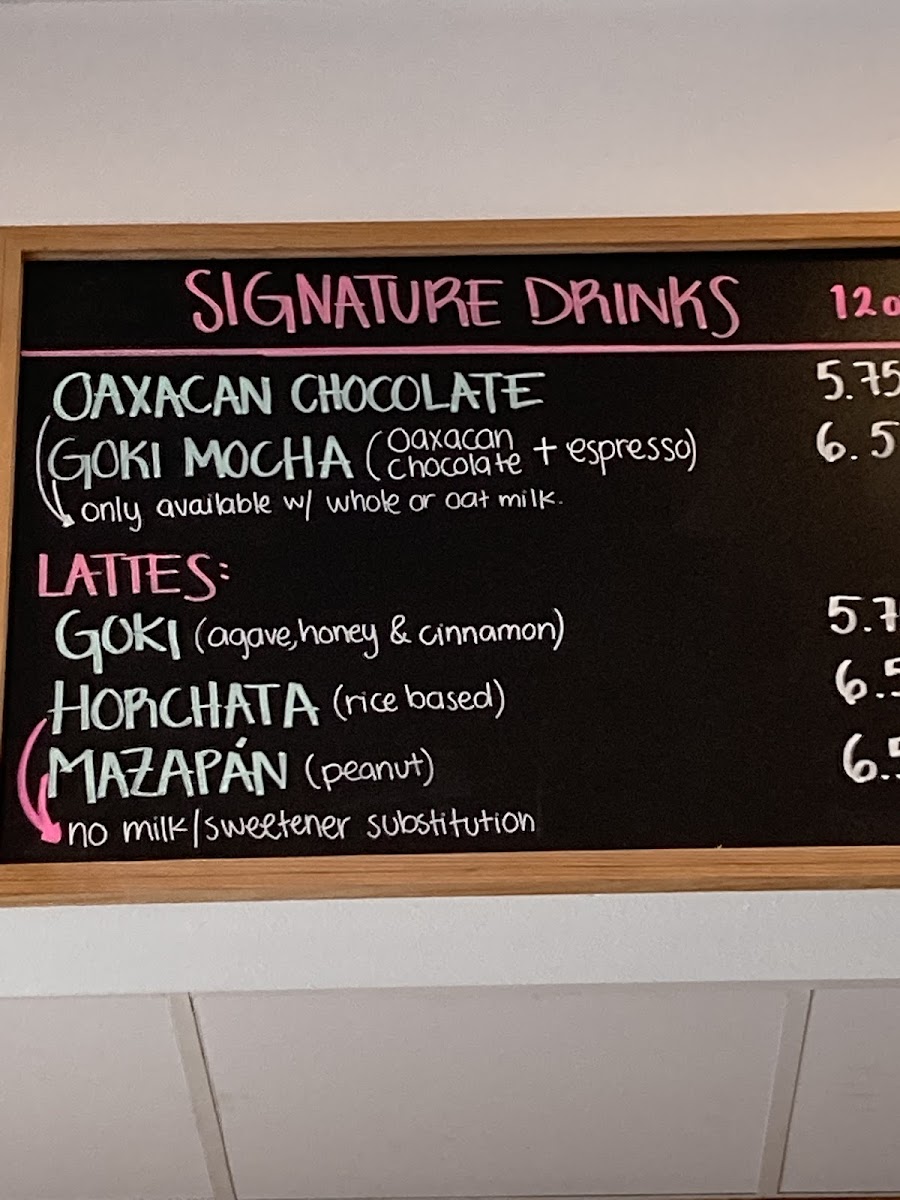 SIGNATURE DRINKS 12o
OAXACAN CHOCOLATE 5.75
GOKI MOCHA (Oaxacan chocolate + espresso) 6.5
only available w/ whole or oat milk.
LATTES:
GOKI (agave, honey & cinnamon) 5.7
HORCHATA (rice based) 6.5
MAZAPÁN (peanut) 6.5
no milk/sweetener substitution